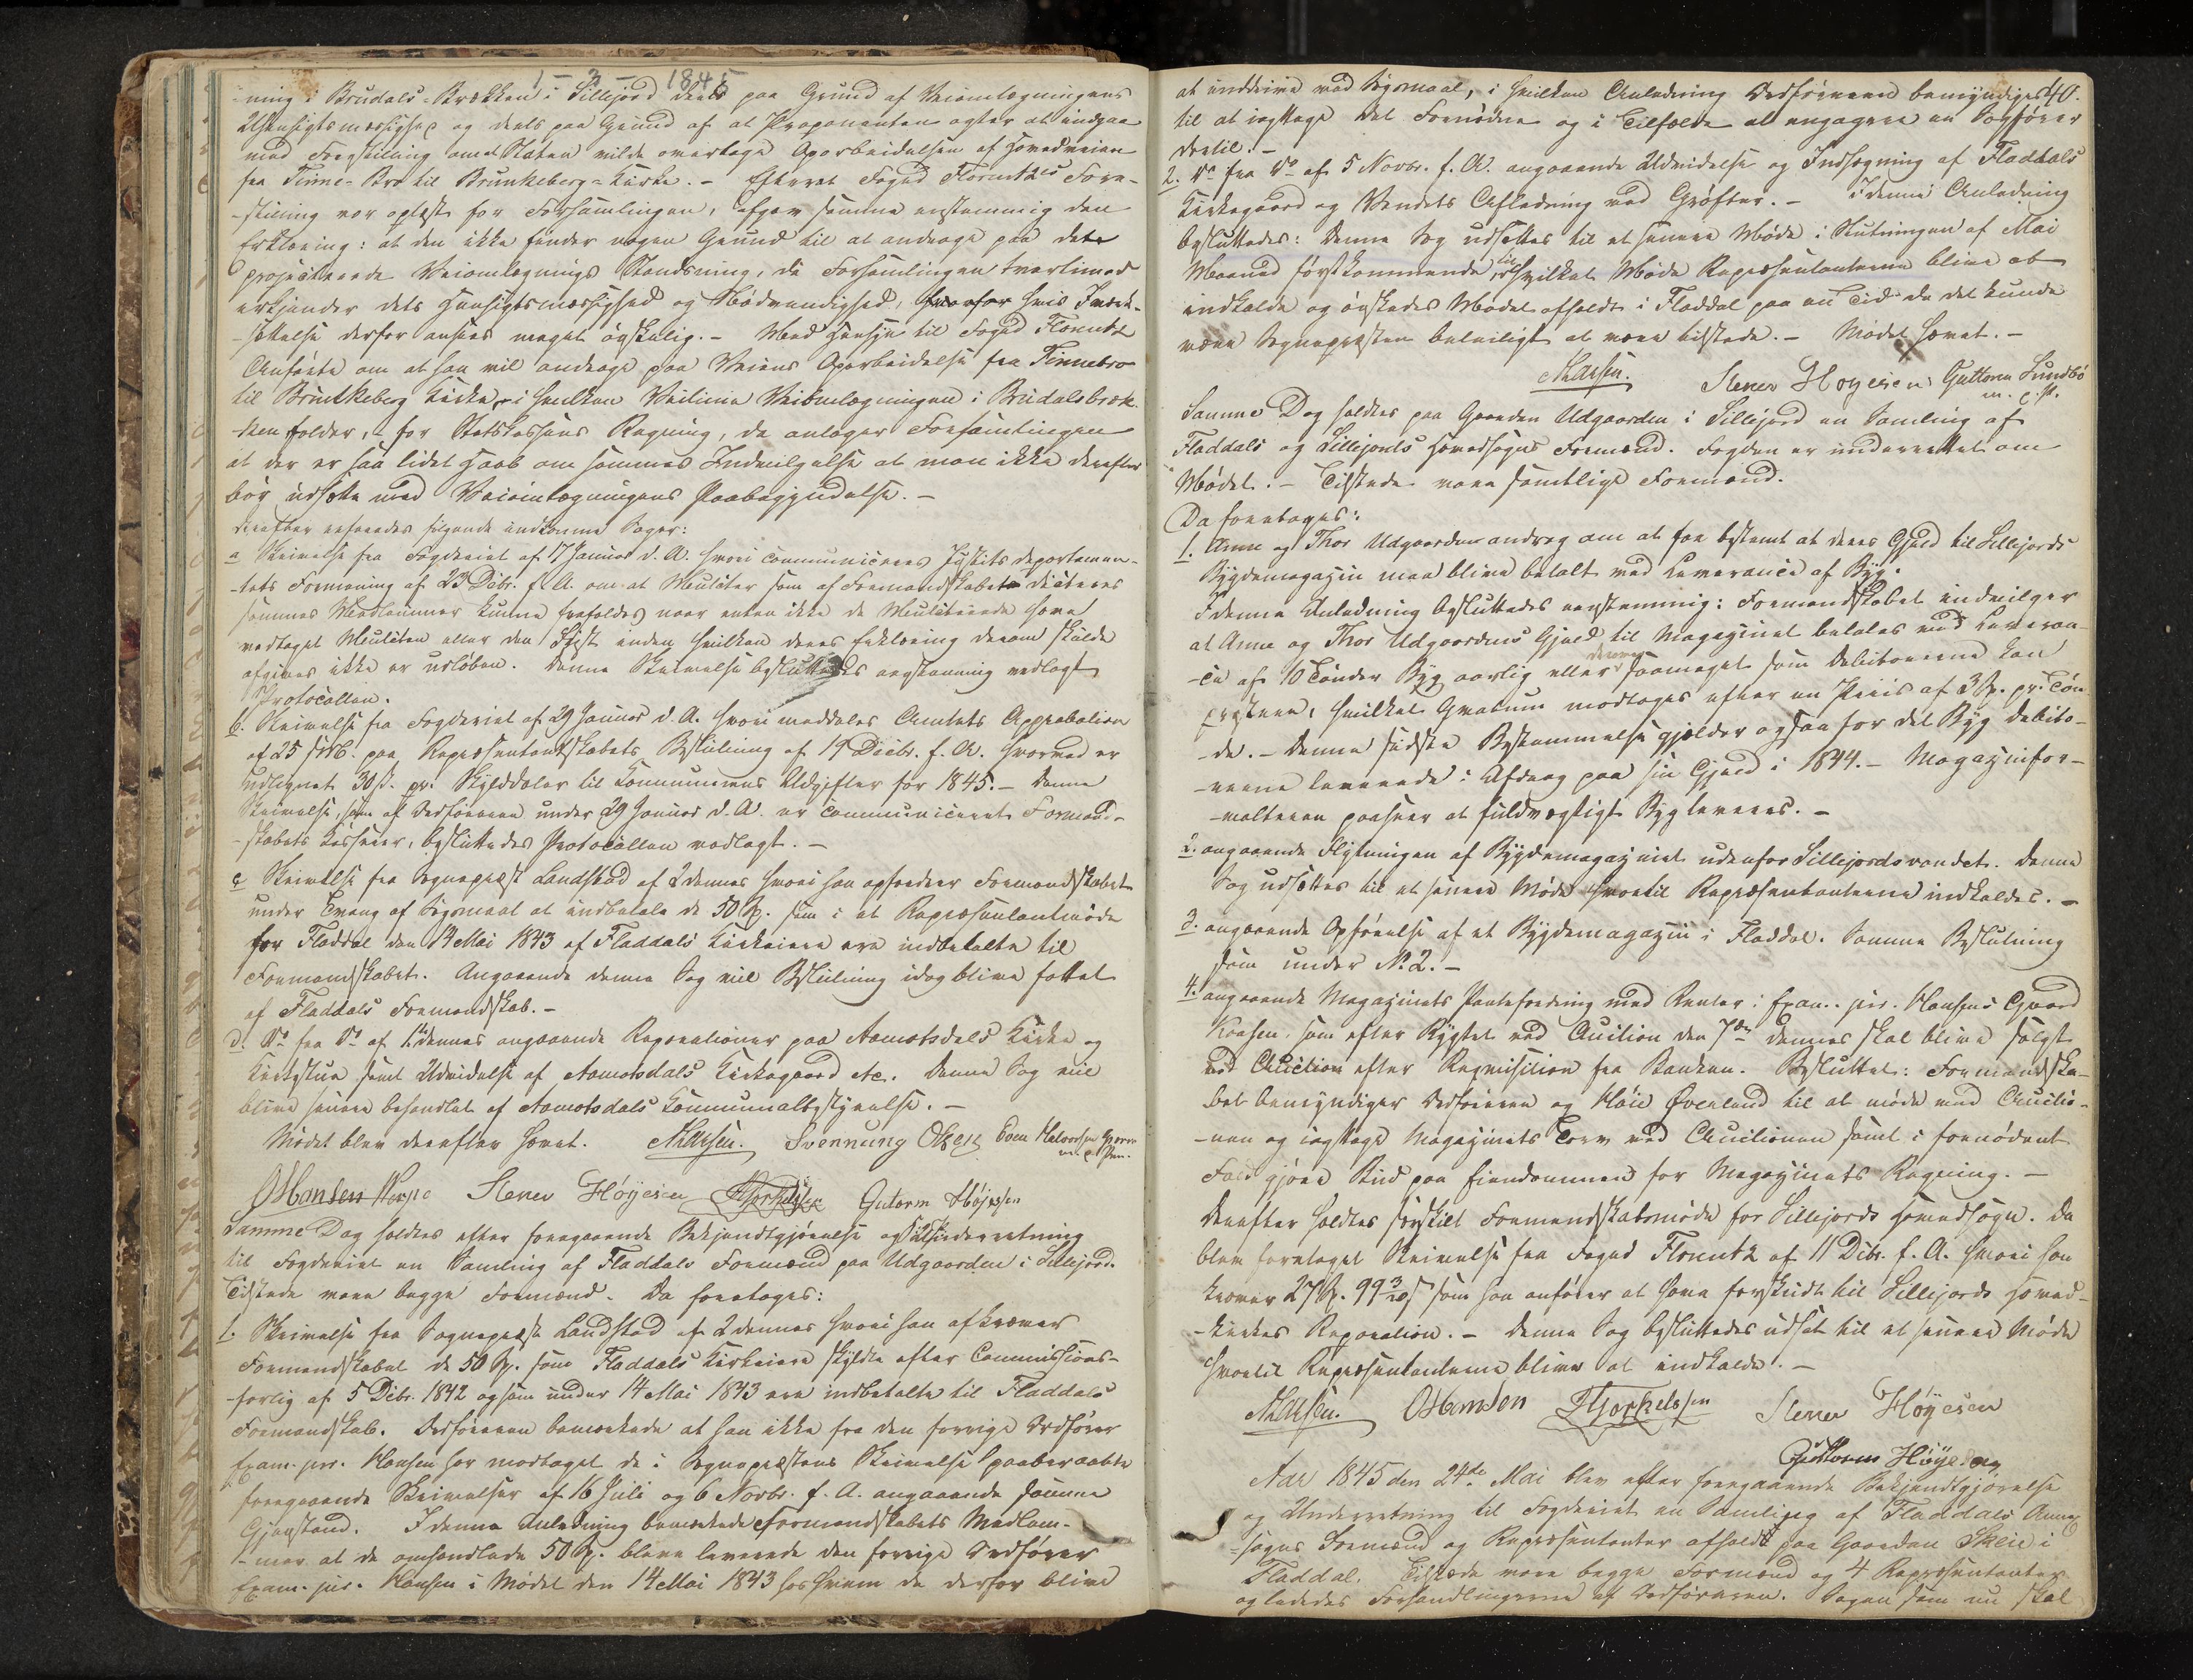 1 - 3 - 1845
-ning i Brudals-Brækken i Sillejord deels paa Grund af Veiomlægningens
Uhensigtsmæssighed og deels paa Grund af at Proponenten agter at indgaae
med Forestilling om at Staten vilde overtage Oparbeidelsen af Hovedveien
fra Tinne-Bro til Brunkeberg-Kirke. - Efterat Foged Florentz's Fore-
-stilling var oplæst for Forsamlingen, afgav samme eenstemmig den
Erklæring: at den ikke finder nogen Grund til at andrage paa dette
projecterede Veiomlægnings Standsning, da Forsamlingen tvertimod
erkjender dets Hensigtsmæssighed og Nødvendighed, hvorfor hvis Iværk-
-sættelse derfor ansees meget ønskelig. - Med Hensyn til Foged Florentz
Anførte om at han vil andrage paa Veiens Oparbeidelse fra Tinnebro
til Brunkeberg Kirke, i hvilken Veilinie Veiomlægningen i Brudalsbræk-
-ken falder, - for Statskassens Regning, da antager Forsamlingen
at der er saa lidet Haab om sammes Indvilgelse at man ikke derefter
bør udsætte med Veiomlægningens Paabegyndelse. -
Derefter refereredes følgende indkomne Sager:
a Skrivelse fra Fogderiet af 17 Januar d. A. hvori communiceres Justitsdepartemen-
-tets Formening af 23 Dcbr. f. A. om at Mulcter som af Formandskabet dicteres
sammes Medlemmer kunne frafaldes naar enten ikke de Mulcterede have
vedtaget Mulcten eller den Frist inden hvilken deres Erklæring derom skulde
afgives ikke er udløben. Denne Skrivelse besluttedes eenstemmig vedlagt
Protocollen.
b. Skrivelse fra Fogderiet af 29 Januar d. A. hvori meddeles Amtets Approbation
af 25 s. M. paa Repræsentantskabets Beslutning af 19 Decbr. f. A. hvorved er
udlignet 30 ß. pr. Skylddaler til Kommunens Udgifter for 1845. - Denne
Skrivelse, som af Ordføreren under 29 Januar d. A. er communiceret Formand-
-skabets Kasserer, besluttedes Protocollen vedlagt. -
c Skrivelse fra Sognepræst Landstad af 2 dennes hvori han opfordrer Formandskabet
under Tvang af Søgsmaal at indbetale de 50 Sp. som i et Repræsentantmøde
for Fladdal den 14 Mai 1843 af Fladdals Kirkeiere ere indbetalte til
Formandskabet. Angaaende denne Sag vil Beslutning idag blive fattet
af Fladdals Formandskab. -
d. Do fra Do af 1. dennes angaaende Reparationer paa Aamotsdals Kirke og
Kirkestue samt Udvidelse af Aamotsdals Kirkegaard etc. Denne Sag vil
blive senere behandlet af Aamotsdals Kommunalbestyrelse. -
Mødet blev derefter hævet. Svennung Olsen Even Halvorsen
m. p. Pen.
OHansen Stener Höÿesen TTorkelssen Gutorm Höjessen
Samme Dag holdtes efter foregaaende Bekjendtgjørelse og Underretning
til Fogderiet en Samling af Fladdals Formænd paa Udgaarden i Sillejord.
Tilstede vare begge Formænd. Da foretoges:
1. Skrivelse fra Sognepræst Landstad af 2 dennes hvori han afkræver
Formandskabet de 50 Sp. som Fladdals Kirkeiere skyldte efter Commissions-
-forlig af 5 Dcbr. 1842 og som under 14 Mai 1843 ere indbetalte til Fladdals
Formandskab. Ordføreren bemærkede at han ikke fra den forrige Ordfører
Exam. jur. Hansen har modtaget de i Sognepræstens Skrivelse paaberaabte
foregaaende Skrivelser af 16 Juli og 6 Novbr. f. A. angaaende samme
Gjenstand. I denne Anledning bemærkede Formandskabets Medlem-
-mer at de omhandlede 50 Sp. bleve leverede den forrige Ordfører
Exam. jur. Hansen i Mødet den 14 Mai 1843 hos hvem de derfor blive
at inddrive ved Søgsmaal, i hvilken Anledning Ordføreren bemyndiges 40.
til at iagttage det Fornødne og i Tilfælde at engagere en Sagfører
dertil. -
2. Do fra Do af 5 Novbr. f. A. angaaende Udvidelse og Indhegning af Fladdals
Kirkegaard og Vandets Afledning ved Grøfter. - I denne Anledning
besluttedes: Denne Sag udsættes til et senere Møde i Slutningen af Mai
Maaned førstkommende til hvilket Møde Repræsentanterne blive at
indkalde og ønskedes Mødet afholdt i Fladdal paa en Tid da det kunde
være Sognepræsten beleiligt at være tilstede. - Mødet hævet. -
Stener Hoyesen Guttorm Lundbö
m. p. P.
Samme Dag holdtes paa Gaarden Udgaarden i Sillejord en Samling af
Fladdals og Sillejords Hovedsogns Formænd. Fogden er underrettet om
Mødet. - Tilstede vare samtlige Formænd.
Da foretoges:
1. Anne og Thor Udgaarden androg om at faa bestemt at deres Gjæld til Sillejords
Bygdemagazin maa blive betalt ved Leverance af Byg.
I denne Anledning besluttedes eenstemmig: Formandskabet indvilger
at Anne og Thor Udgaardens Gjæld til Magazinet betales med Leveran-
-ce af 10 Tønder Byg aarlig eller saameget som Debitorerne kan
præstere, hvilket Qvantum modtages efter en Priis af 3 Sp. pr. Tøn-
-de. - Denne sidste Bestemmelse gjælder ogsaa for det Byg Debito-
-rerne leverede i Afdrag paa sin Gjæld i 1844. - Magazinfor-
-valteren paaseer at fuldvægtigt Byg leveres. -
2. angaaende Flytningen af Bygdemagazinet udenfor Sillejordsvandet. Denne
Sag udsættes til et senere Møde hvortil Repræsentanterne indkaldes. -
3. angaaende Opførelse af et Bygdemagazin i Fladdal. Samme Beslutning
som under No 2. -
4. angaaende Magazinets Pantefordring med Renter i Exam. jur. Hansens Gaard
som efter Rygtet ved Auction den 7de dennes skal blive solgt
ved Auction efter Reqvisition fra Banken. Besluttet: Formandska-
bet bemyndiger Ordføreren og Høie Øverland til at møde ved Auctio-
-nen og iagttage Magazinets Tarv ved Auctionen samt i fornødent
Fald gjøre Bud paa Eiendommen for Magazinets Regning. -
Derefter holdtes særskilt Formandskabsmøde for Sillejords Hovedsogn. Da
blev foretaget Skrivelse fra Foged Florentz af 11 Dcbr. f. A. hvori han
kræver 27 Sp. 99 3/10 ß som han anfører at have forskudt til Sillejords Hoved-
-kirkes Reparation. - Denne Sag besluttedes udsat til et senere Møde
hvortil Repræsentanterne bliver at indkalde. -
OHansen TTorkelssen Stener Höÿesen
Guttorm Höÿesen
Aar 1845 den 24de Mai blev efter foregaaende Bekjendtgjørelse
og Underretning til Fogderiet en Samling af Fladdals Annex-
-sogns Formænd og Repræsentanter afholdt paa Gaarden Skeie i
Fladdal. Tilstede vare begge Formænd og 4 Repræsentanter
og lededes Forhandlingerne af Ordføreren. Sagen som nu skal